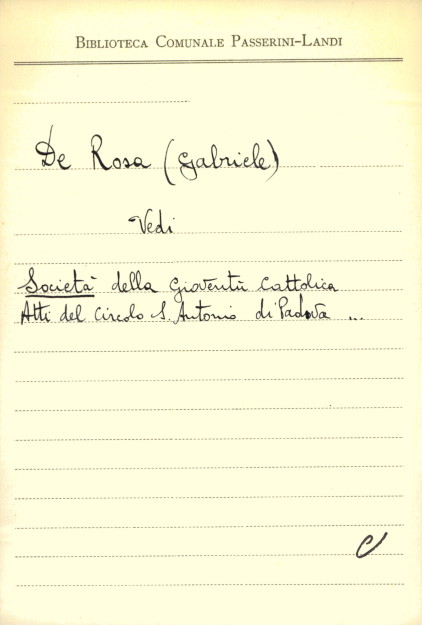 BIBLIOTECA COMUNALE PASSERINI-LANDI
De Rosa (Gabriele)
Vedi
Società della Gioventù Cattolica
Atti del Circolo S. Antonio di Padova ...